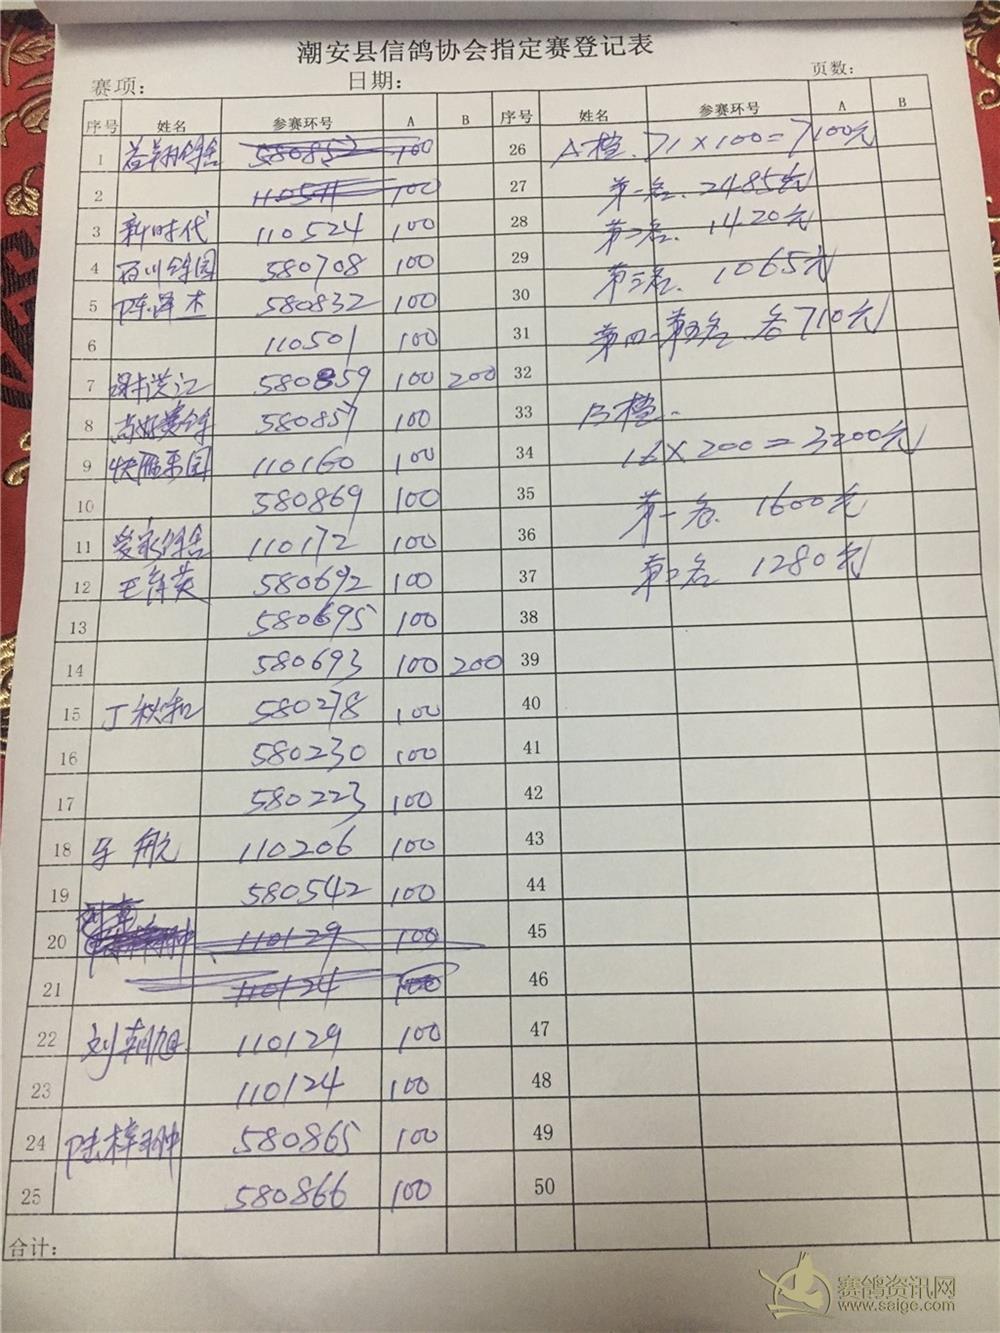 潮安县信鸽协会指定赛登记表
赛项: 日期: 页数:
序号 姓名 参赛环号 A B 序号 姓名 参赛环号 A B
1 益翔鸽舍 580857 100 26 A档. 71×100=7100元
2 110511 100 27 第一名. 2485元
3 新时代 110524 100 28 第二名. 1420元
4 百川鸽园 580708 100 29 第三名. 1065元
5 陈泽杰 580832 100 30
6 110501 100 31 第四-第五名. 各710元
7 谢洪江 580859 100 200 32
8 580857 100 33 B档.
9 110160 100 34 16×200=3200元
10 580869 100 35 第一名. 1600元
11 爱家鸽舍 110172 100 36
12 580692 100 37 第二名 1280元
13 580695 100 38
14 580693 100 200 39
15 丁秋和 580278 100 40
16 580230 100 41
17 580223 100 42
18 航 110206 100 43
19 580542 100 44
20 110129 100 45
21 110124 100 46
22 刘朝旭 110129 100 47
23 110124 100 48
24 580865 100 49
25 580866 100 50
合计:
赛鸽资讯网
www.saige.com